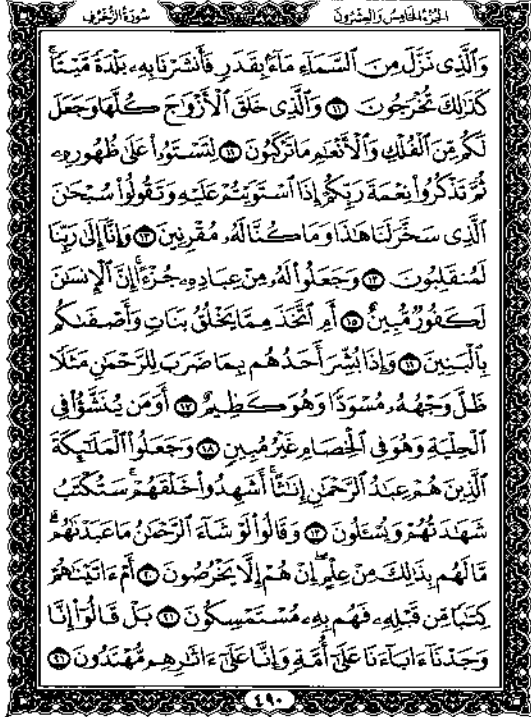 الجزء الخامس والعشرون
سورة الزخرف
وَٱلَّذِى نَزَّلَ مِنَ ٱلسَّمَآءِ مَآءًۢ بِقَدَرٍ فَأَنشَرْنَا بِهِۦ بَلْدَةً مَّيْتًا ۚ
كَذَٰلِكَ تُخْرَجُونَ ١١ وَٱلَّذِى خَلَقَ ٱلْأَزْوَٰجَ كُلَّهَا وَجَعَلَ
لَكُم مِّنَ ٱلْفُلْكِ وَٱلْأَنْعَٰمِ مَا تَرْكَبُونَ ١٢ لِتَسْتَوُۥا۟ عَلَىٰ ظُهُورِهِۦ
ثُمَّ تَذْكُرُوا۟ نِعْمَةَ رَبِّكُمْ إِذَا ٱسْتَوَيْتُمْ عَلَيْهِ وَتَقُولُوا۟ سُبْحَٰنَ
ٱلَّذِى سَخَّرَ لَنَا هَٰذَا وَمَا كُنَّا لَهُۥ مُقْرِنِينَ ١٣ وَإِنَّآ إِلَىٰ رَبِّنَا
لَمُنقَلِبُونَ ١٤ وَجَعَلُوا۟ لَهُۥ مِنْ عِبَادِهِۦ جُزْءًا ۚ إِنَّ ٱلْإِنسَٰنَ
لَكَفُورٌ مُّبِينٌ ١٥ أَمِ ٱتَّخَذَ مِمَّا يَخْلُقُ بَنَاتٍ وَأَصْفَىٰكُم
بِٱلْبَنِينَ ١٦ وَإِذَا بُشِّرَ أَحَدُهُم بِمَا ضَرَبَ لِلرَّحْمَٰنِ مَثَلًا
ظَلَّ وَجْهُهُۥ مُسْوَدًّا وَهُوَ كَظِيمٌ ١٧ أَوَمَن يُنَشَّؤُا۟ فِى
ٱلْحِلْيَةِ وَهُوَ فِى ٱلْخِصَامِ غَيْرُ مُبِينٍ ١٨ وَجَعَلُوا۟ ٱلْمَلَٰٓئِكَةَ
ٱلَّذِينَ هُمْ عِبَٰدُ ٱلرَّحْمَٰنِ إِنَٰثًا ۚ أَشَهِدُوا۟ خَلْقَهُمْ ۚ سَتُكْتَبُ
شَهَٰدَتُهُمْ وَيُسْـَٔلُونَ ١٩ وَقَالُوا۟ لَوْ شَآءَ ٱلرَّحْمَٰنُ مَا عَبَدْنَٰهُم ۗ
مَّا لَهُم بِذَٰلِكَ مِنْ عِلْمٍ ۖ إِنْ هُمْ إِلَّا يَخْرُصُونَ ٢٠ أَمْ ءَاتَيْنَٰهُمْ
كِتَٰبًا مِّن قَبْلِهِۦ فَهُم بِهِۦ مُسْتَمْسِكُونَ ٢١ بَلْ قَالُوٓا۟ إِنَّا
وَجَدْنَآ ءَابَآءَنَا عَلَىٰٓ أُمَّةٍ وَإِنَّا عَلَىٰٓ ءَاثَٰرِهِم مُّهْتَدُونَ ٢٢
٤٩٠